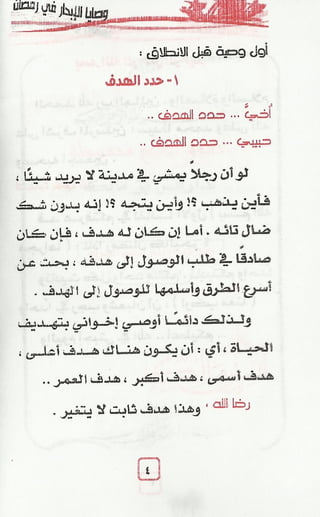 وصايا الإبحار في رمضان
أول وصية قبل الانطلاق :
١- حدد الهدف
أُخيَّ ... حدد الهدف ..
حبيبي ... حدد الهدف ..
لو أن رجلاً يمشي في مدينة لا يريد شيئًا ،
فأين يذهب ؟! وأين يتجه ؟! إنه بدون شك
ضال تائه . أما إن كان له هدف ، فإن كان
صادقًا في طلب الوصول إلى هدفه ، بحث عن
أسرع الطرق وأسلمها للوصول إلى الهدف .
ولذلك دائمًا أوصي إخواني بتهديف
الحياة ، أي : أن يكون هناك هدف أعلى ،
هدف أسمى ، هدف أكبر ، هدف العمر ..
رضا الله ، وهذا هدف ثابت لا يتغير .
٤